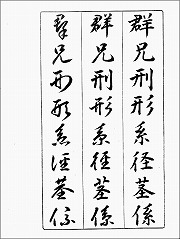 群兄刑形系径茎係
群兄刑形系径茎係
群兄刑形系径茎係